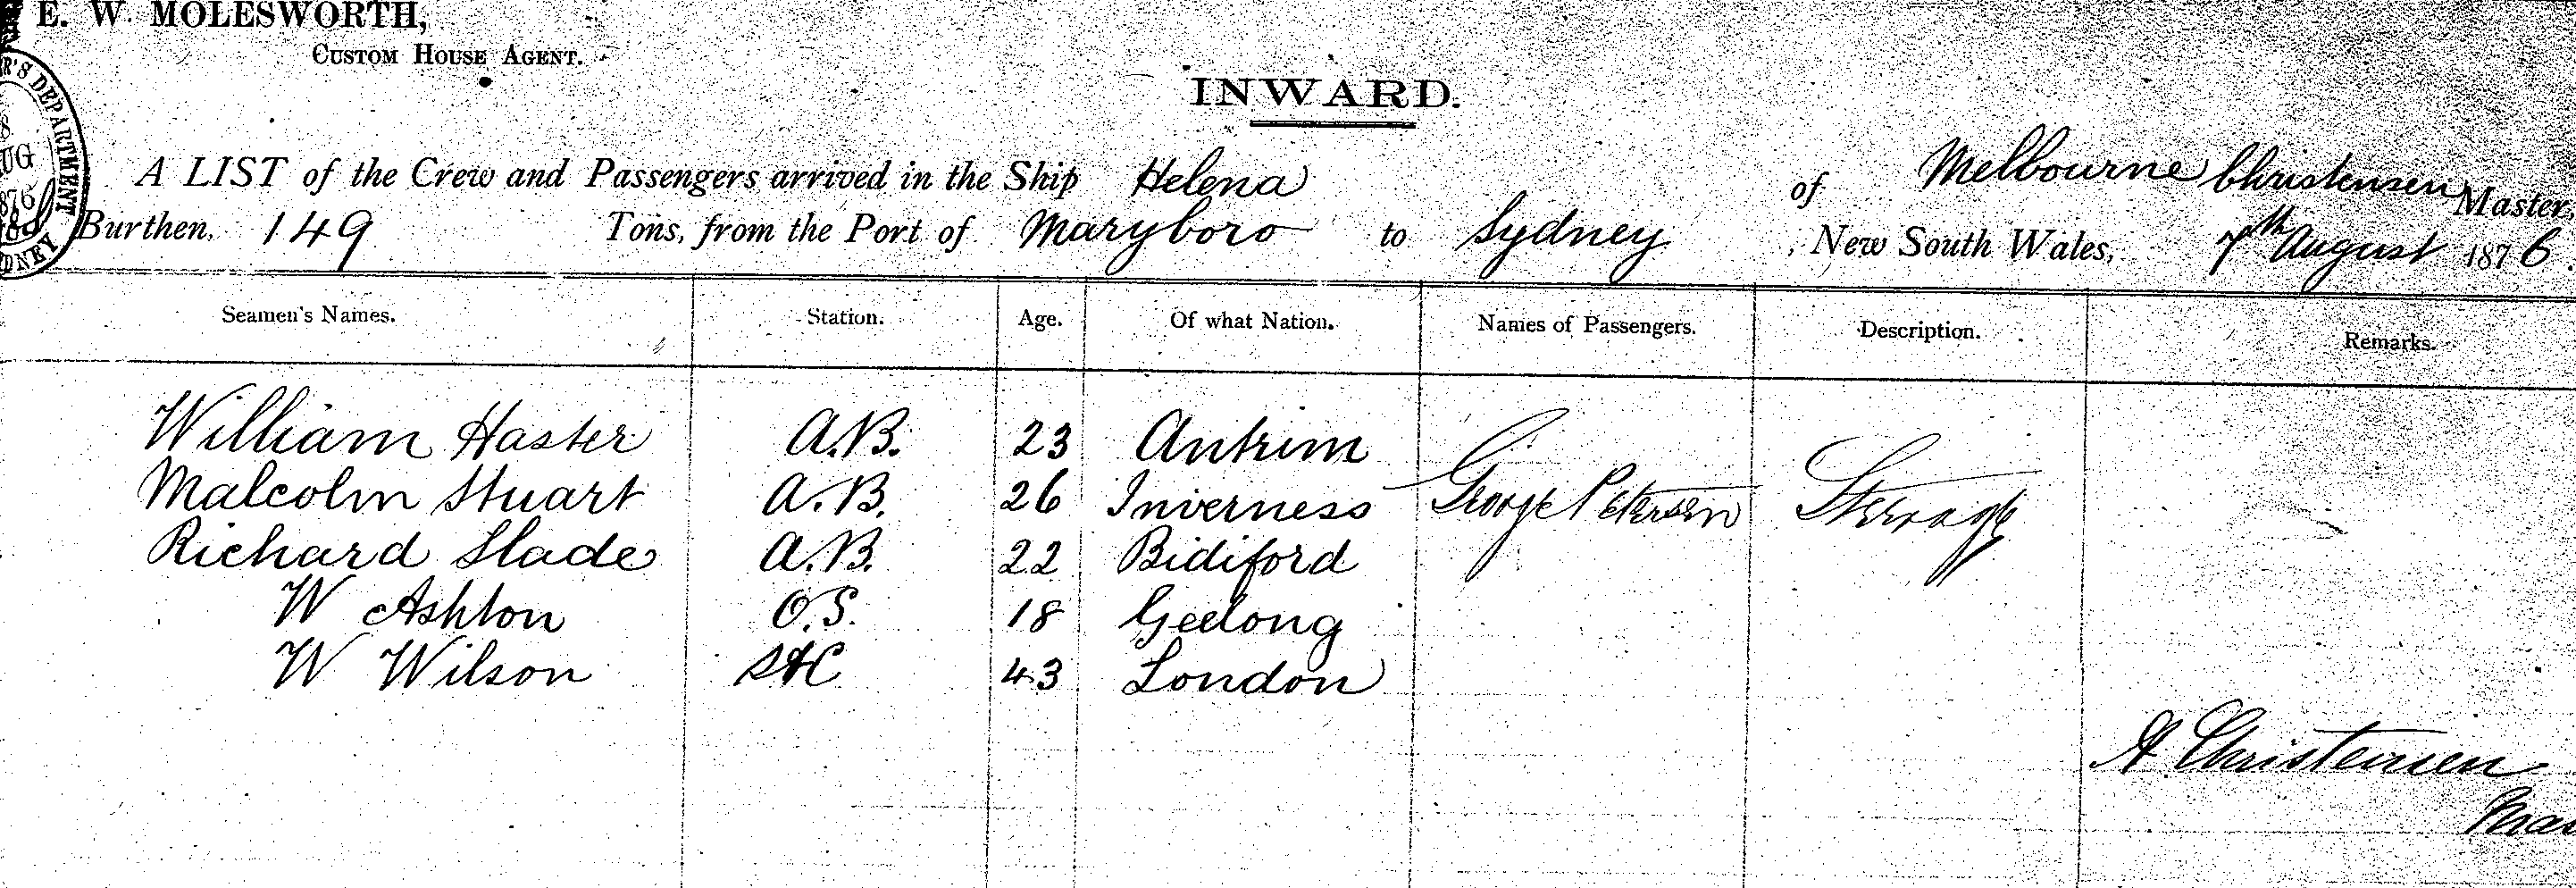 E. W. MOLESWORTH,
CUSTOM HOUSE AGENT.
R'S DEPARTMENT
8
UG
1876
DNEY
INWARD.
A LIST of the Crew and Passengers arrived in the Ship Helena of Melbourne Christensen Master
Burthen, 149 Tons, from the Port of Maryboro to Sydney, New South Wales, 7th August 1876.
Seamen's Names. Station. Age. Of what Nation. Names of Passengers. Description. Remarks.
William Haster A.B. 23 Antrim
Malcolm Stuart A.B. 26 Inverness George Petersen Steerage
Richard Slade A.B. 22 Bidiford
W Ashton O.S. 18 Geelong
W Wilson S&C 43 London
A Christensen
Mas